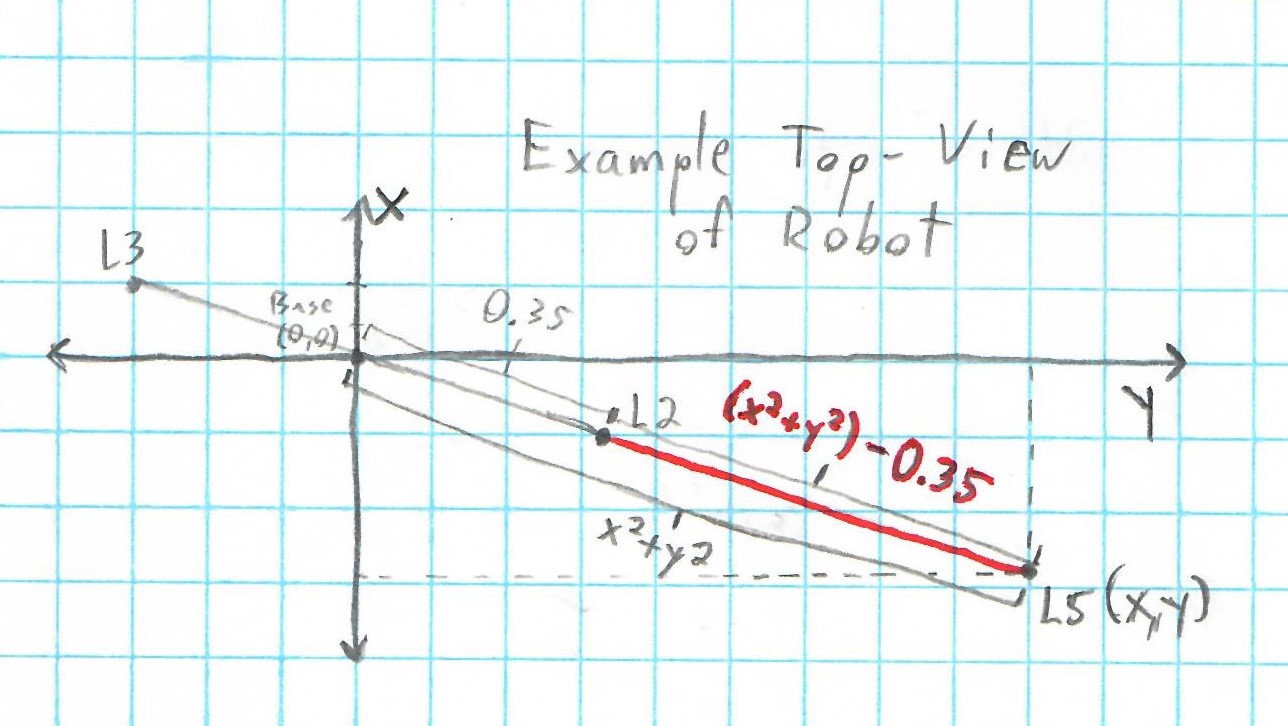 Example Top-View
of Robot
X
L3
Base
(0,0)
0.35
Y
L2
(x²+y²)-0.35
x²+y2
L5 (x,y)